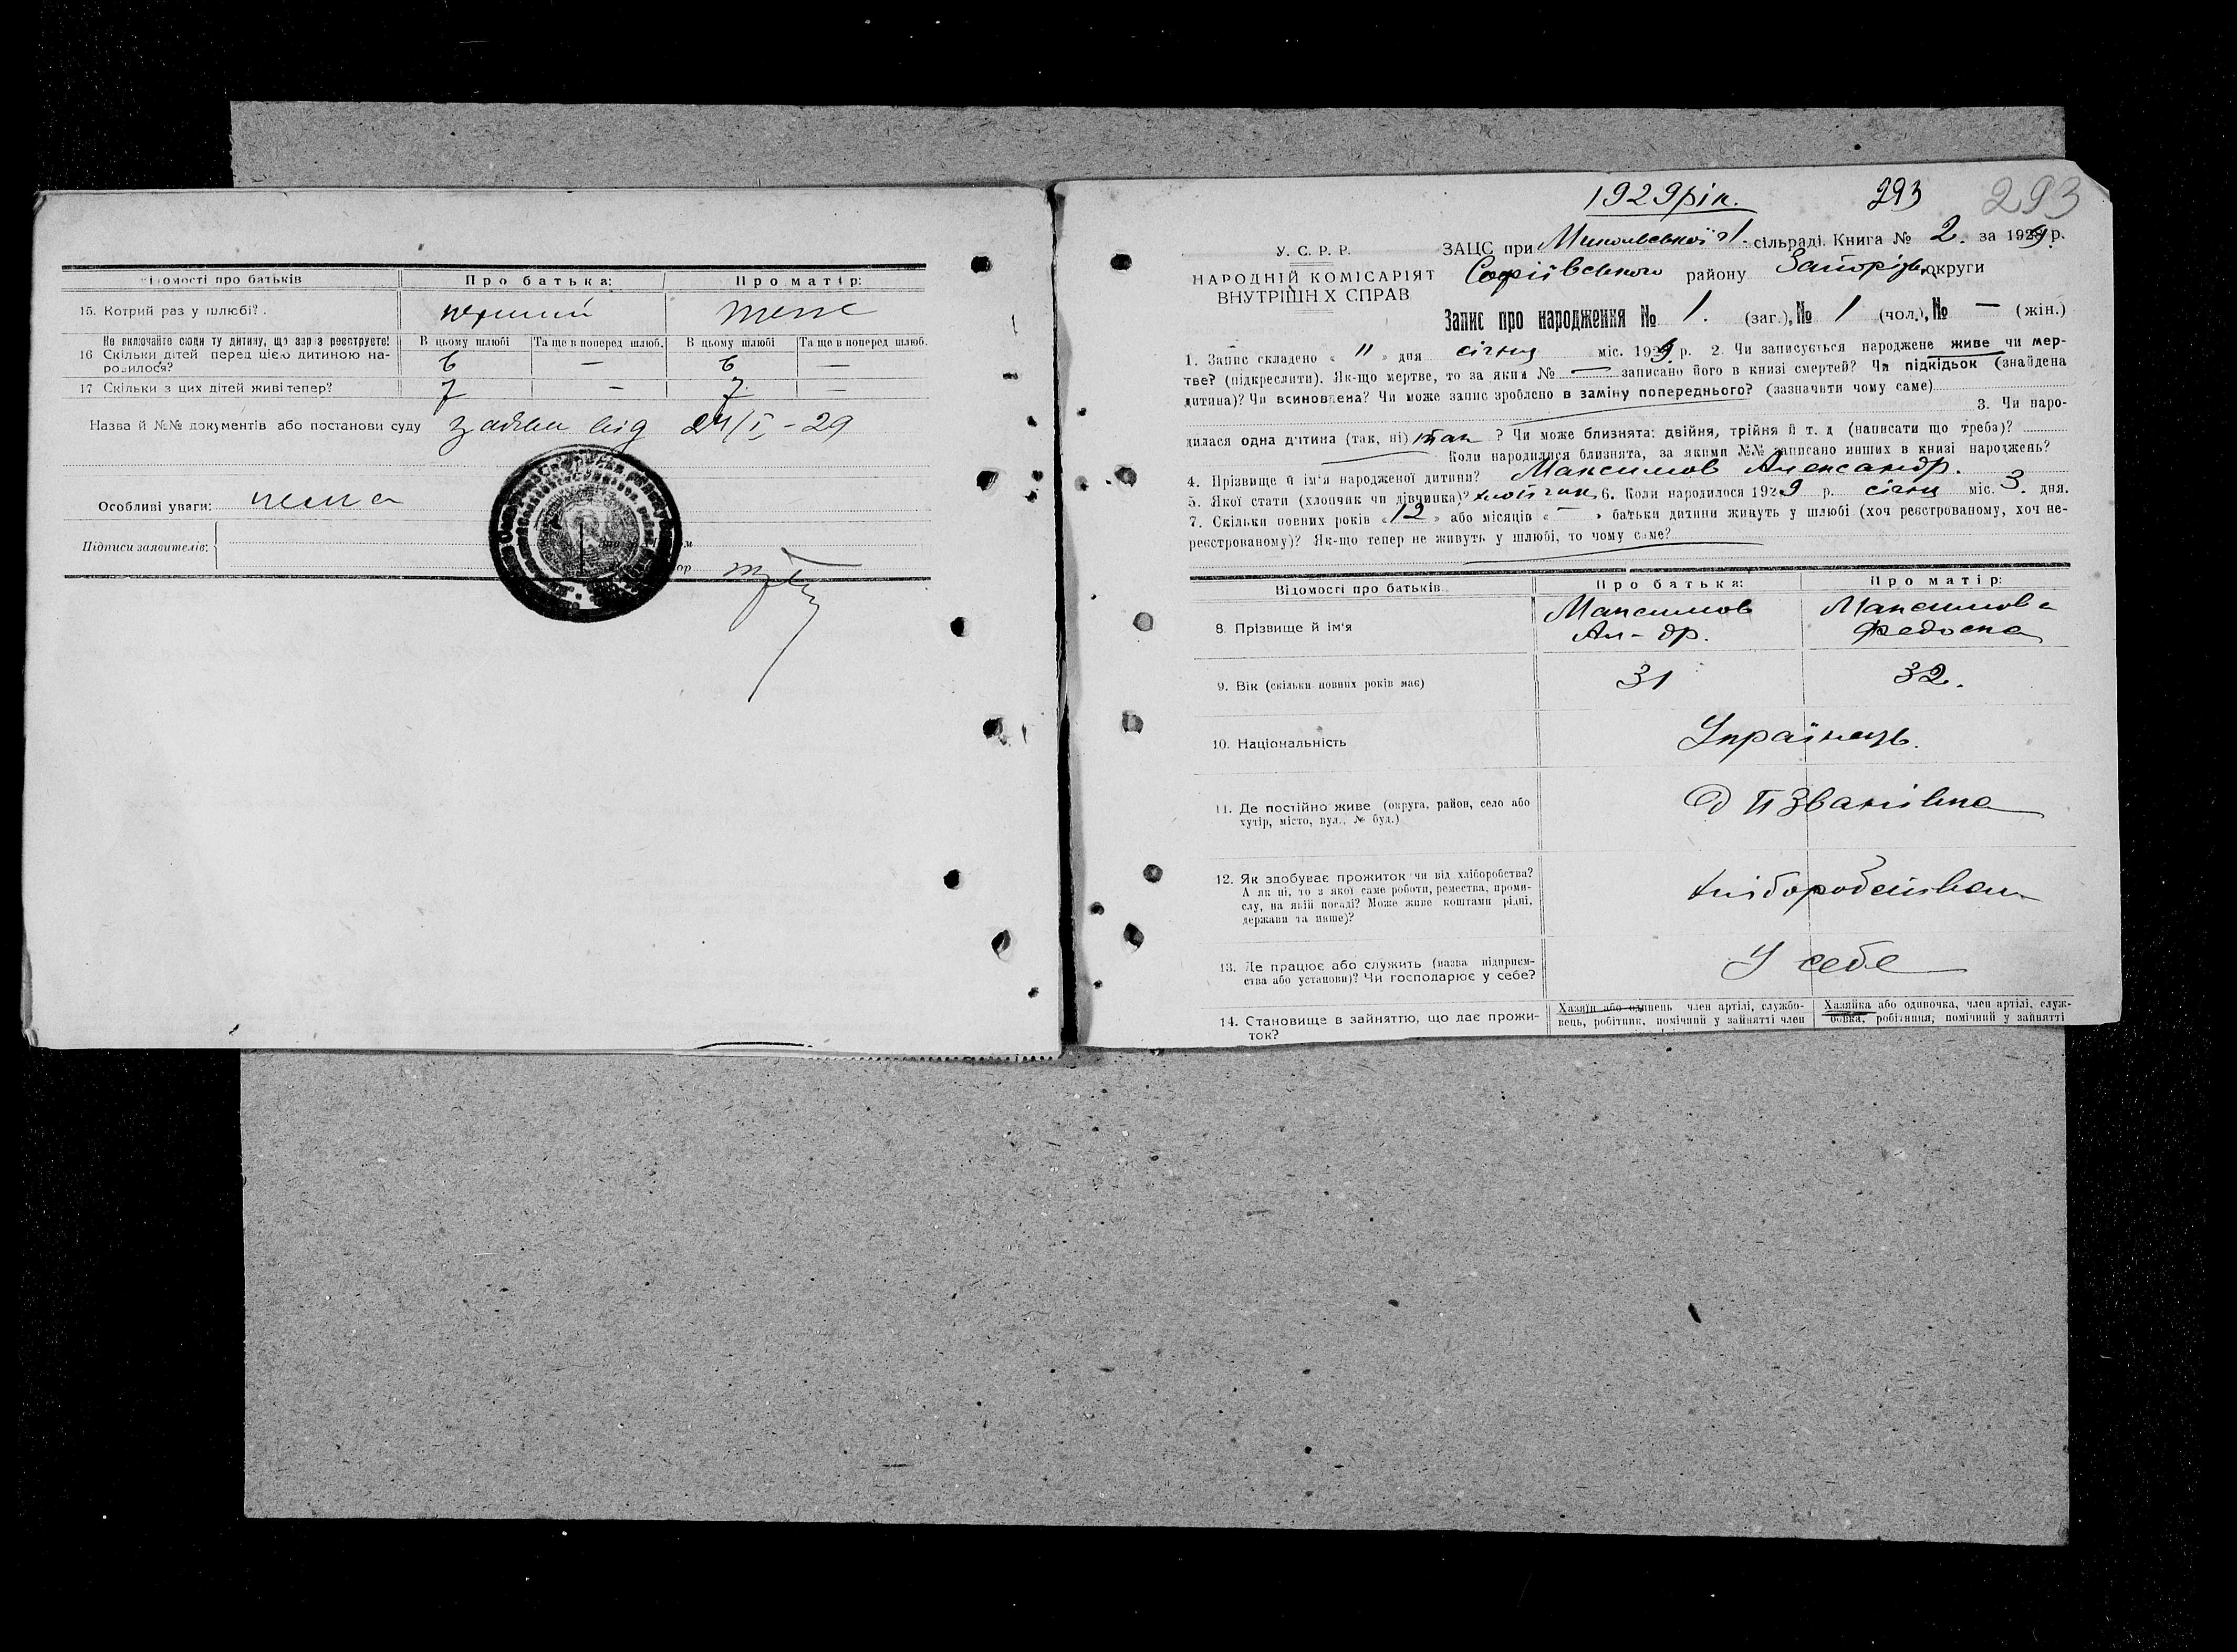 Відомості про батьків Про батька: Про матір:
15. Котрий раз у шлюбі? перший теж
Не включайте сюди ту дитину, що зараз реєструєте! В цьому шлюбі Та ще в поперед шлюб. В цьому шлюбі Та ще в поперед шлюб.
16 Скільки дітей перед цією дитиною на-
родилося? 6 — 6 —
17 Скільки з цих дітей живі тепер? 7 — 7 —
Назва й №№ документів або постанови суду заява від 24/I – 29
Особливі уваги: нема
Підписи заявителів:
1929 рік. 293 293
У. С. Р. Р.
НАРОДНІЙ КОМІСАРІЯТ
ВНУТРІШН Х СПРАВ
ЗАЦС при сільраді. Книга № 2. за 1929 р.
Софіївського району Запорізьк округи
Запис про народження № 1. (заг.), № 1 (чол.), № — (жін.)
1. Запис складено « 11 » дня січня міс. 1929 р. 2. Чи записується народжене живе чи мер-
тве? (підкреслити). Як-що мертве, то за яким № — записано його в книзі смертей? Чи підкідьок (знайдена
дитина)? Чи всиновлена? Чи може запис зроблено в заміну попереднього? (зазначити чому саме)
3. Чи наро-
дилася одна дитина (так, ні) так ? Чи може близнята: двійня, трійня й т. д (написати що треба)?
Коли народилися близнята, за якими №№ записано инших в книзі народжень?
4. Прізвище й ім'я народженої дитини? Максимов Александр.
5. Якої стати (хлопчик чи дівчинка)? хлопчик 6. Коли народилося 1929 р. січня міс. 3. дня.
7. Скільки повних років « 12 » або місяців « — » батьки дитини живуть у шлюбі (хоч реєстрованому, хоч не-
реєстрованому)? Як-що тепер не живуть у шлюбі, то чому саме?
Відомості про батьків Про батька: Про матір:
8. Прізвище й ім'я Максимов Ал-др. Максимова Федоска
9. Вік (скільки повних років має) 31 32.
10. Національність Українець.
11. Де постійно живе (округа, район, село або
хутір, місто, вул., № буд.)
12. Як здобуває прожиток чи від хліборобства?
А як ні, то з якої саме роботи, ремества, проми-
слу, на якій посаді? Може живе коштами рідні,
держави та инше)? хліборобством
13. Де працює або служить (назва підприєм-
ства або установи)? Чи господарює у себе? У себе
14. Становище в зайнятю, що дає прожи-
ток?
Хазяїн або одинець член артілі, службо-
вець, робітник, помічний у зайнятті член
Хазяйка або одиночка, член артілі, служ-
бовка, робітниця, помічний у зайнятті